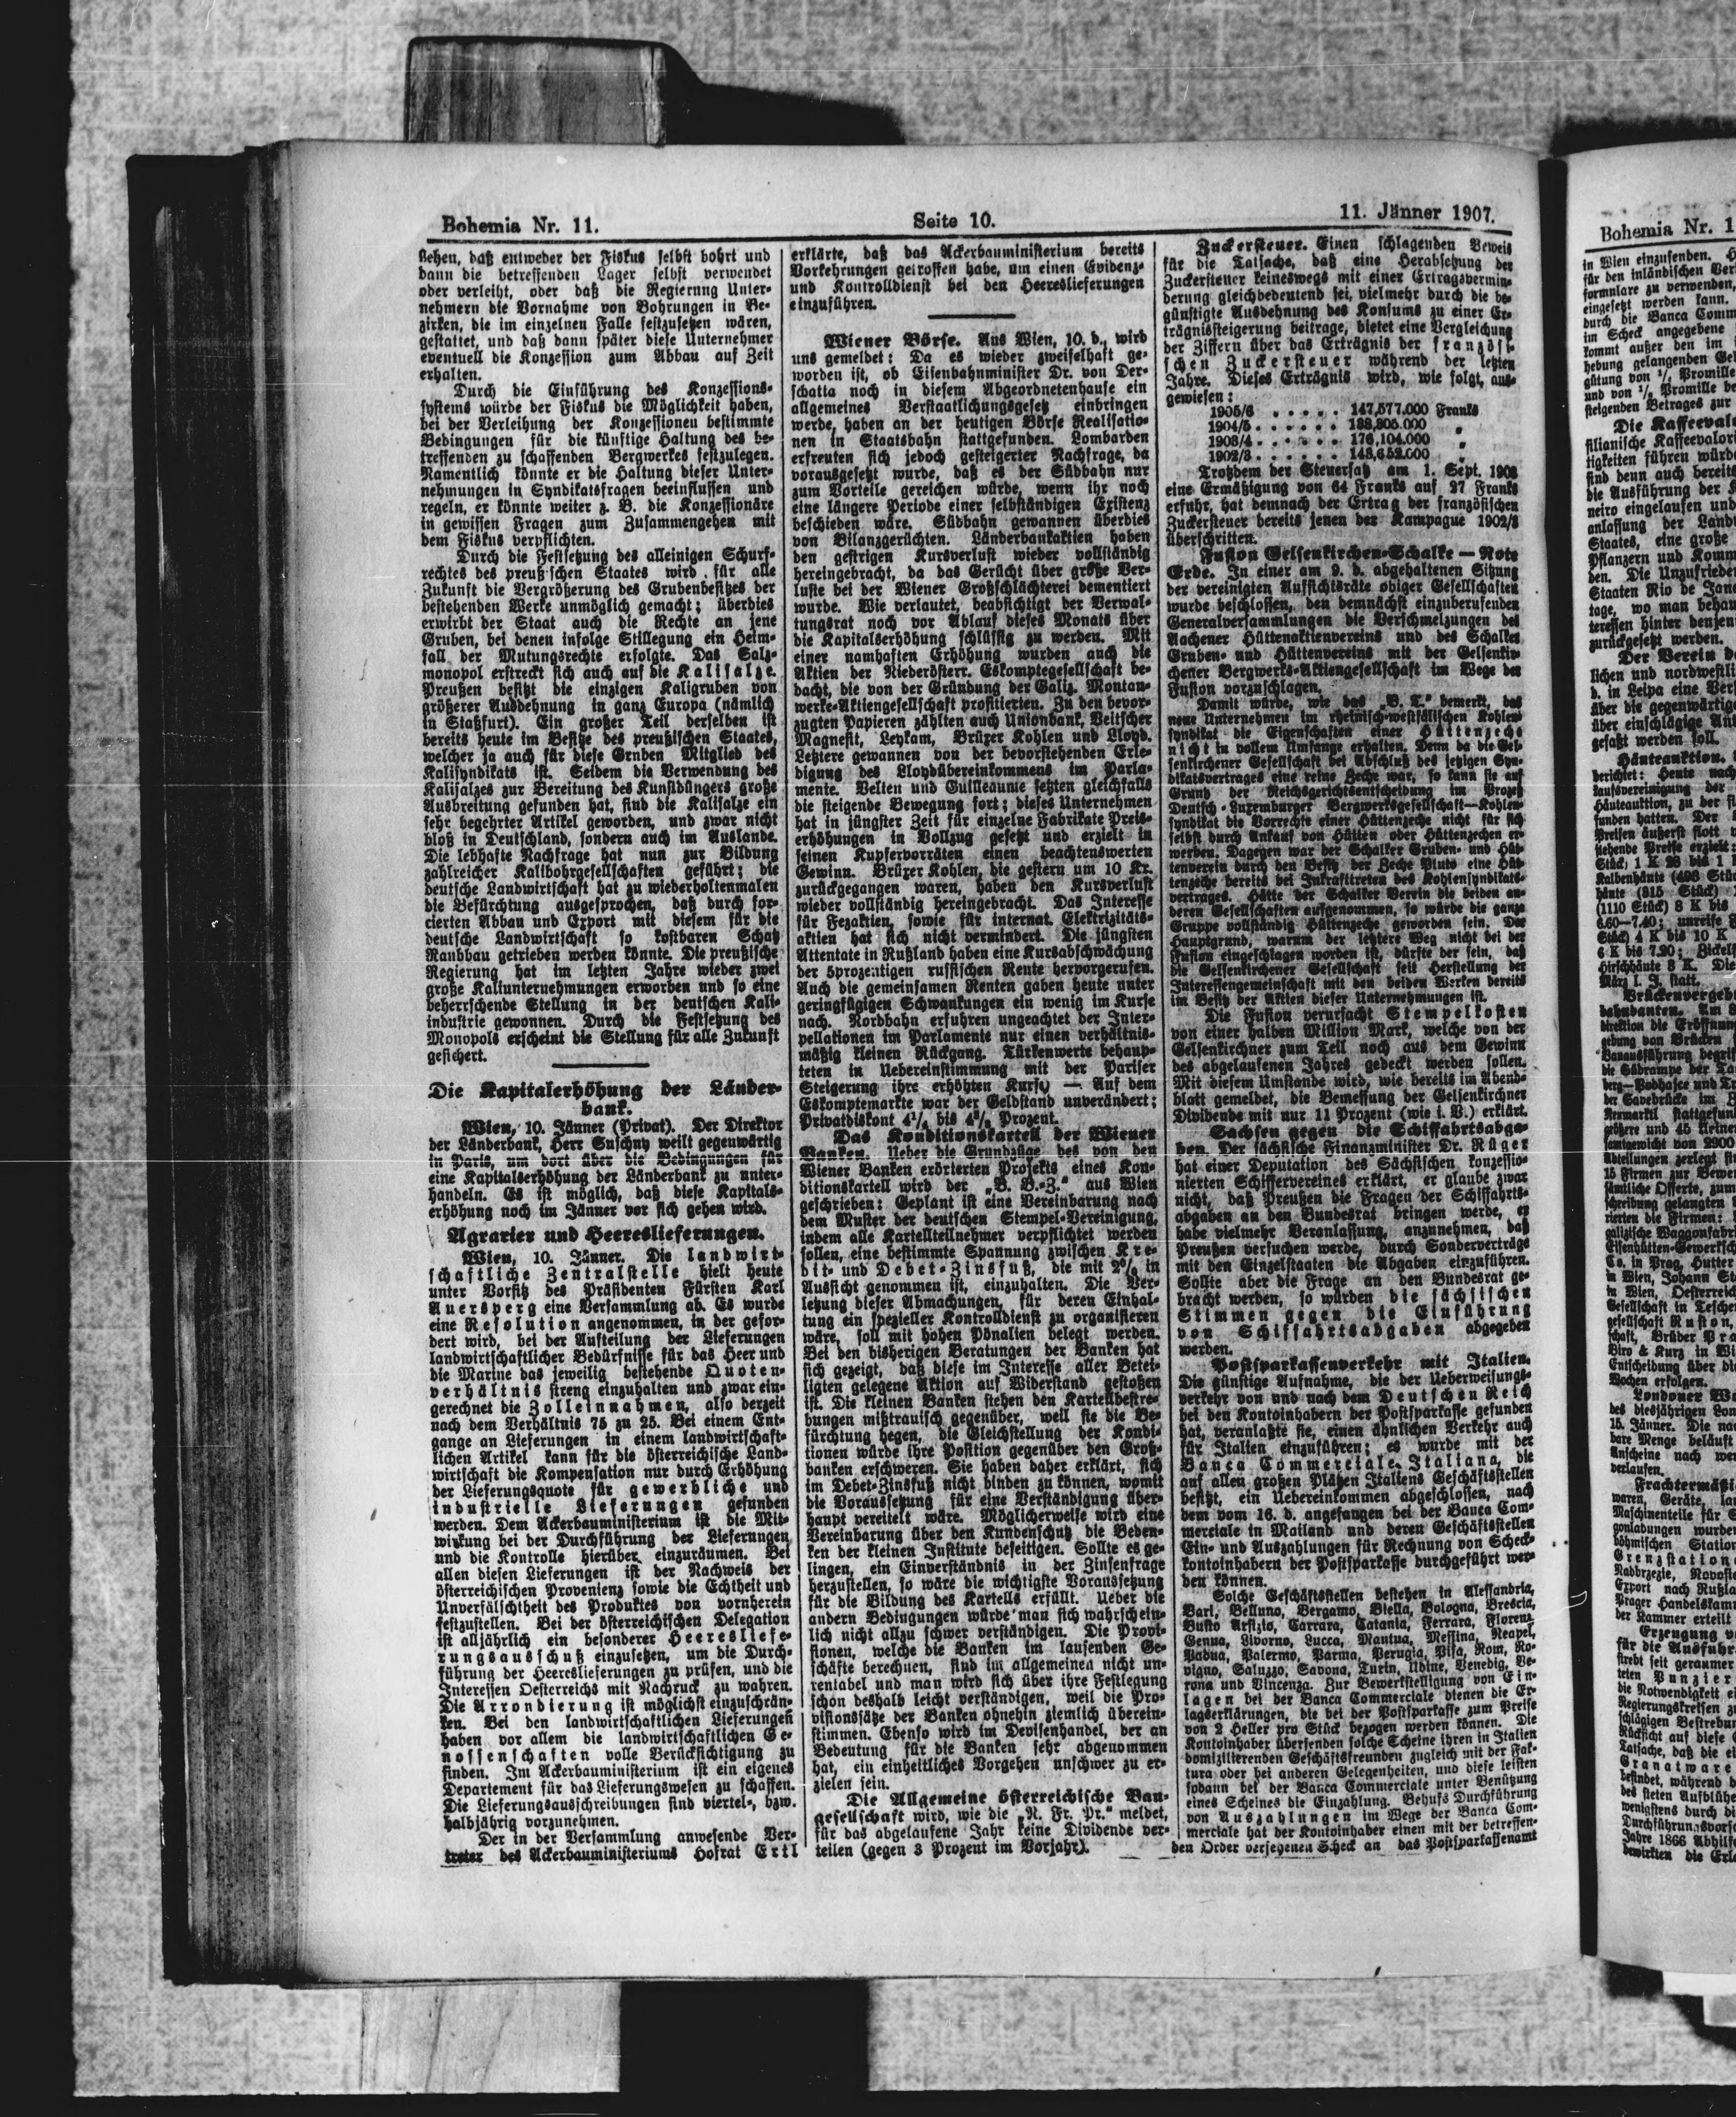 Bohemia Nr. 11.
Seite 10.
11. Jänner 1907.
stehen, daß entweder der Fiskus selbst bohrt und
dann die betreffenden Lager selbst verwendet
oder verleiht, oder daß die Regierung Unter-
nehmern die Vornahme von Bohrungen in Be-
zirken, die im einzelnen Falle festzusetzen wären,
gestattet, und daß dann später diese Unternehmer
eventuell die Konzession zum Abbau auf Zeit
erhalten.
Durch die Einführung des Konzessions-
systems würde der Fiskus die Möglichkeit haben,
bei der Verleihung der Konzessionen bestimmte
Bedingungen für die künftige Haltung des be-
treffenden zu schaffenden Bergwerkes festzulegen.
Namentlich könnte er die Haltung dieser Unter-
nehmungen in Syndikatsfragen beeinflussen und
regeln, er könnte weiter z. B. die Konzessionäre
in gewissen Fragen zum Zusammengehen mit
dem Fiskus verpflichten.
Durch die Festsetzung des alleinigen Schurf-
rechtes des preuß'schen Staates wird für alle
Zukunft die Vergrößerung des Grubenbesitzes der
bestehenden Werke unmöglich gemacht; überdies
erwirbt der Staat auch die Rechte an jene
Gruben, bei denen infolge Stillegung ein Heim-
fall der Mutungsrechte erfolgte. Das Salz-
monopol erstreckt sich auch auf die Kalisalze.
Preußen besitzt die einzigen Kaligruben von
größerer Ausdehnung in ganz Europa (nämlich
in Staßfurt). Ein großer Teil derselben ist
bereits heute im Besitze des preußischen Staates,
welcher ja auch für diese Gruben Mitglied des
Kalisyndikats ist. Seidem die Verwendung des
Kalisalzes zur Bereitung des Kunstdüngers große
Ausbreitung gefunden hat, sind die Kalisalze ein
sehr begehrter Artikel geworden, und zwar nicht
bloß in Deutschland, sondern auch im Auslande.
Die lebhafte Nachfrage hat nun zur Bildung
zahlreicher Kalibohrgesellschaften geführt; die
deutsche Landwirtschaft hat zu wiederholtenmalen
die Befürchtung ausgesprochen, daß durch for-
cierten Abbau und Export mit diesem für die
deutsche Landwirtschaft so kostbaren Schatz
Raubbau getrieben werden könnte. Die preußische
Regierung hat im letzten Jahre wieder zwei
große Kaliunternehmungen erworben und so eine
beherrschende Stellung in der deutschen Kali-
industrie gewonnen. Durch die Festsetzung des
Monopols erscheint die Stellung für alle Zukunft
gesichert.
Die Kapitalerhöhung der Länder-
bank.
Wien, 10. Jänner (Privat). Der Direktor
der Länderbank, Herr Suschny weilt gegenwärtig
in Paris, um dort über die Bedingungen für
eine Kapitalserhöhung der Länderbank zu unter-
handeln. Es ist möglich, daß diese Kapitals-
erhöhung noch im Jänner vor sich gehen wird.
Agrarier und Heereslieferungen.
Wien, 10. Jänner. Die landwirt-
schaftliche Zentralstelle hielt heute
unter Vorsitz des Präsidenten Fürsten Karl
Auersperg eine Versammlung ab. Es wurde
eine Resolution angenommen, in der gefor-
dert wird, bei der Aufteilung der Lieferungen
landwirtschaftlicher Bedürfnisse für das Heer und
die Marine das jeweilig bestehende Quoten-
verhältnis streng einzuhalten und zwar ein-
gerechnet die Zolleinnahmen, also derzeit
nach dem Verhältnis 75 zu 25. Bei einem Ent-
gange an Lieferungen in einem landwirtschaft-
lichen Artikel kann für die österreichische Land-
wirtschaft die Kompensation nur durch Erhöhung
der Lieferungsquote für gewerbliche und
industrielle Lieferungen gefunden
werden. Dem Ackerbauministerium ist die Mit-
wirkung bei der Durchführung der Lieferungen
und die Kontrolle hierüber einzuräumen. Bei
allen diesen Lieferungen ist der Nachweis der
österreichischen Provenienz sowie die Echtheit und
Unverfälschtheit des Produktes von vornherein
festzustellen. Bei der österreichischen Delegation
ist alljährlich ein besonderer Heereslife-
rungsausschuß einzusetzen, um die Durch-
führung der Heereslieferungen zu prüfen, und die
Interessen Oesterreichs mit Nachruck zu wahren.
Die Arrondierung ist möglichst einzuschrän-
ken. Bei den landwirtschaftlichen Lieferungen
haben vor allem die landwirtschaftlichen Ge-
nossenschaften volle Berücksichtigung zu
finden. Im Ackerbauministerium ist ein eigenes
Departement für das Lieferungswesen zu schaffen.
Die Lieferungsausschreibungen sind viertel-, bzw.
halbjährig vorzunehmen.
Der in der Versammlung anwesende Ver-
treter des Ackerbauministeriums Hofrat Ertl
erklärte, daß das Ackerbauministerium bereits
Vorkehrungen getroffen habe, um einen Evidenz-
und Kontrolldienst bei den Heereslieferungen
einzuführen.
Wiener Börse. Aus Wien, 10. d., wird
uns gemeldet: Da es wieder zweifelhaft ge-
worden ist, ob Eisenbahnminister Dr. von Der-
schatta noch in diesem Abgeordnetenhause ein
allgemeines Verstaatlichungsgesetz einbringen
werde, haben an der heutigen Börse Realisatio-
nen in Staatsbahn stattgefunden. Lombarden
erfreuten sich jedoch gesteigerter Nachfrage, da
vorausgesetzt wurde, daß es der Südbahn nur
zum Vorteile gereichen würde, wenn ihr noch
eine längere Periode einer selbständigen Existenz
beschieden wäre. Südbahn gewannen überdies
von Bilanzgerüchten. Länderbankaktien haben
den gestrigen Kursverlust wieder vollständig
hereingebracht, da das Gerücht über große Ver-
luste bei der Wiener Großschlächterei dementiert
wurde. Wie verlautet, beabsichtigt der Verwal-
tungsrat noch vor Ablauf dieses Monats über
die Kapitalserhöhung schlüssig zu werden. Mit
einer namhaften Erhöhung wurden auch die
Aktien der Niederösterr. Eskomptegesellschaft be-
dacht, die von der Gründung der Galiz. Montan-
werke-Aktiengesellschaft profitierten. Zu den bevor-
zugten Papieren zählten auch Unionbank, Veitscher
Magnesit, Leykam, Brüxer Kohlen und Lloyd.
Letztere gewannen von der bevorstehenden Erle-
digung des Lloydübereinkommens im Parla-
mente. Velten und Guilleaume setzten gleichfalls
die steigende Bewegung fort; dieses Unternehmen
hat in jüngster Zeit für einzelne Fabrikate Preis-
erhöhungen in Vollzug gesetzt und erzielt in
seinen Kupfervorräten einen beachtenswerten
Gewinn. Brüxer Kohlen, die gestern um 10 Kr.
zurückgegangen waren, haben den Kursverlust
wieder vollständig hereingebracht. Das Interesse
für Fezaktien, sowie für internat. Elektrizitäts-
aktien hat sich nicht vermindert. Die jüngsten
Attentate in Rußland haben eine Kursabschwächung
der 5prozentigen russischen Rente hervorgerufen.
Auch die gemeinsamen Renten gaben heute unter
geringfügigen Schwankungen ein wenig im Kurse
nach. Nordbahn erfuhren ungeachtet der Inter-
pellationen im Parlamente nur einen verhältnis-
mäßig kleinen Rückgang. Türkenwerte behaup-
teten in Uebereinstimmung mit der Pariser
Steigerung ihre erhöhten Kurse — Auf dem
Eskomptemarkte war der Geldstand unverändert;
Privatdiskont bis Prozent.
Das Konditionskartell der Wiener
Banken. Ueber die Grundzüge des von den
Wiener Banken erörterten Projekts eines Kon-
ditionskartell wird der „B. B.-Z." aus Wien
geschrieben: Geplant ist eine Vereinbarung nach
dem Muster der deutschen Stempel-Vereinigung,
indem alle Kartellteilnehmer verpflichtet werden
sollen, eine bestimmte Spannung zwischen Kre-
dit- und Debet-Zinsfuß, die mit 2% in
Aussicht genommen ist, einzuhalten. Die Ver-
letzung dieser Abmachungen, für deren Einhal-
tung ein spezieller Kontrolldienst zu organisieren
wäre, soll mit hohen Pönalien belegt werden.
Bei den bisherigen Beratungen der Banken hat
sich gezeigt, daß diese im Interesse aller Betei-
ligten gelegene Aktion auf Widerstand gestoßen
ist. Die kleinen Banken stehen den Kartellbestre-
bungen mißtrauisch gegenüber, weil sie die Be-
fürchtung hegen, die Gleichstellung der Kondi-
tionen würde ihre Position gegenüber den Groß-
banken erschweren. Sie haben daher erklärt, sich
im Debet-Zinsfuß nicht binden zu können, womit
die Voraussetzung für eine Verständigung über-
haupt vereitelt wäre. Möglicherweise wird eine
Vereinbarung über den Kundenschutz die Beden-
ken der kleinen Institute beseitigen. Sollte es ge-
lingen, ein Einverständnis in der Zinsenfrage
herzustellen, so wäre die wichtigste Voraussetzung
für die Bildung des Kartells erfüllt. Ueber die
andern Bedingungen würde man sich wahrschein-
lich nicht allzu schwer verständigen. Die Provi-
sionen, welche die Banken im laufenden Ge-
schäfte berechnen, sind im allgemeinen nicht un-
rentabel und man wird sich über ihre Festlegung
schon deshalb leicht verständigen, weil die Pro-
visionssätze der Banken ohnehin ziemlich überein-
stimmen. Ebenso wird im Devisenhandel, der an
Bedeutung für die Banken sehr abgenommen
hat, ein einheitliches Vorgehen unschwer zu er-
zielen sein.
Die Allgemeine österreichische Bau-
gesellschaft wird, wie die „N. Fr. Pr." meldet,
für das abgelaufene Jahr keine Dividende ver-
teilen (gegen 3 Prozent im Vorjahr).
Zuckersteuer. Einen schlagenden Beweis
für die Tatsache, daß eine Herabsetzung der
Zuckersteuer keineswegs mit einer Ertragsvermin-
derung gleichbedeutend sei, vielmehr durch die be-
günstigte Ausdehnung des Konsums zu einer Er-
trägnissteigerung beitrage, bietet eine Vergleichung
der Ziffern über das Erträgnis der französi-
schen Zuckersteuer während der letzten
Jahre. Dieses Erträgnis wird, wie folgt, aus-
gewiesen:
1905/6 . . . . . 147,577.000 Franks
1904/5 . . . . . . 138,805.000 „
1903/4 . . . . . . 176,104.000 „
1902/3 . . . . . . 143,652.000 „
Trotzdem der Steuersatz am 1. Sept. 1903
eine Ermäßigung von 64 Franks auf 27 Franks
erfuhr, hat demnach der Ertrag der französischen
Zuckersteuer bereits jenen der Kampagne 1902/3
überschritten.
Fusion Gelsenkirchen-Schalke — Rote
Erde. In einer am 9. d. abgehaltenen Sitzung
der vereinigten Aufsichtsräte obiger Gesellschaften
wurde beschlossen, den demnächst einzuberufenden
Generalversammlungen die Verschmelzungen des
Aachener Hüttenaktienvereins und des Schalker
Gruben- und Hüttenvereins mit der Gelsenkir-
chener Bergwerks-Aktiengesellschaft im Wege der
Fusion vorzuschlagen.
Damit würde, wie das „B. T." bemerkt, das
neue Unternehmen im rheinisch-westfälischen Kohlen-
syndikat die Eigenschaften einer Hüttenzeche
nicht in vollem Umfange erhalten. Denn da die Gel-
senkirchener Gesellschaft bei Abschluß des jetzigen Syn-
dikatsvertrages eine reine Zeche war, so kann sie auf
Grund der Reichsgerichtsentscheidung im Prozeß
Deutsch-Luxemburger Bergwerksgesellschaft—Kohlen-
syndikat die Vorrechte einer Hüttenzeche nicht für sich
selbst durch Ankauf von Hütten oder Hüttenzechen er-
werben. Dagegen war der Schalker Gruben- und Hüt-
tenverein durch den Besitz der Zeche Pluto eine Hüt-
tenzeche bereits bei Inkrafttreten des Kohlensyndikats-
vertrages. Hätte der Schalker Verein die beiden an-
deren Gesellschaften aufgenommen, so würde die ganze
Gruppe vollständig Hüttenzeche geworden sein. Der
Hauptgrund, warum der letztere Weg nicht bei der
Fusion eingeschlagen worden ist, dürfte der sein, daß
die Gelsenkirchener Gesellschaft seit Herstellung der
Interessengemeinschaft mit den beiden Werken bereits
im Besitz der Aktien dieser Unternehmungen ist.
Die Fusion verursacht Stempelkosten
von einer halben Million Mark, welche von der
Gelsenkirchner zum Teil noch aus dem Gewinn
des abgelaufenen Jahres gedeckt werden sollen.
Mit diesem Umstande wird, wie bereits im Abend-
blatt gemeldet, die Bemessung der Gelsenkirchner
Dividende mit nur 11 Prozent (wie i. V.) erklärt.
Sachsen gegen die Schiffahrtsabga-
ben. Der sächsische Finanzminister Dr. Rüger
hat einer Deputation des Sächsischen konzessio-
nierten Schiffervereines erklärt, er glaube zwar
nicht, daß Preußen die Fragen der Schiffahrts-
abgaben an den Bundesrat bringen werde, er
habe vielmehr Veranlassung, anzunehmen, daß
Preußen versuchen werde, durch Sonderverträge
mit den Einzelstaaten die Abgaben einzuführen.
Sollte aber die Frage an den Bundesrat ge-
bracht werden, so würden die sächsischen
Stimmen gegen die Einführung
von Schiffahrtsabgaben abgegeben
werden.
Postsparkassenverkehr mit Italien.
Die günstige Aufnahme, die der Ueberweisungs-
verkehr von und nach dem Deutschen Reich
bei den Kontoinhabern der Postsparkasse gefunden
hat, veranlaßte sie, einen ähnlichen Verkehr auch
für Italien einzuführen; es wurde mit der
Banca Commerciale Italiana, die
auf allen großen Plätzen Italiens Geschäftsstellen
besitzt, ein Uebereinkommen abgeschlossen, nach
dem vom 16. d. angefangen bei der Banca Com-
merciale in Mailand und deren Geschäftsstellen
Ein- und Auszahlungen für Rechnung von Scheck-
kontoinhabern der Postsparkasse durchgeführt wer-
den können.
Solche Geschäftsstellen bestehen in Alessandria,
Bari, Belluno, Bergamo, Biella, Bologna, Brescia,
Busto Arsizio, Carrara, Catania, Ferrara, Florenz,
Genua, Livorno, Lucca, Mantua, Messina, Neapel,
Padua, Palermo, Parma, Perugia, Pisa, Rom, Ro-
vigno, Saluzzo, Savona, Turin, Udine, Venedig, Ve-
rona und Vincenza. Zur Bewerkstelligung von Ein-
lagen bei der Banca Commerciale dienen die Er-
lagserklärungen, die bei der Postsparkasse zum Preise
von 2 Heller pro Stück bezogen werden können. Die
Kontoinhaber übersenden solche Scheine ihren in Italien
domizilierenden Geschäftsfreunden zugleich mit der Fak-
tura oder bei anderen Gelegenheiten, und diese leisten
sodann bei der Banca Commerciale unter Benützung
eines Scheines die Einzahlung. Behufs Durchführung
von Auszahlungen im Wege der Banca Com-
merciale hat der Kontoinhaber einen mit der betreffen-
den Order versehenen Scheck an das Postsparkassenamt
Bohemia Nr. 1
in Wien einzusenden.
für den inländischen
formulare zu verwenden,
eingesetzt werden kann.
durch die Banca Comm
im Scheck angegebene
kommt außer den im
hebung gelangenden
gütung von Promille
und von Promille
steigenden Betrages zur
Die
silianische
tigkeiten führen
sind denn auch bereits
die Ausführung der
neiro eingelaufen und
anlassung der
Staates, eine große
Pflanzern und
den. Die
Staaten Rio de
tage, wo man
teressen hinter
zurückgesetzt werden.
Der Verein
lichen und
d. in Leipa eine
über die
über einschlägige
gefaßt werden soll.
Häuteauktion.
berichtet: Heute
Häuteauktion, zu der
funden hatten. Der
Preisen äußerst flott
Stück; 1 K 28 bis 1
Kalbenhäute
häute (815 Stück)
(1110 Stück) 8 K bis
6.60—7.40; unreife
Stück) 4 K bis 10 K
6 K bis 7.20;
Hirschhäute 8 K. Die
März l. J. statt.
direktion die
gebung von Brücken
die Südrampe der
der Savebrücke im
größere und 45
samtgewicht von 2900
Abteilungen zerlegt
15 Firmen zur
sämtliche Offerte, zum
schreibung gelangten
rierten die Firmen:
galizische
Co. in Prag, Hutter
in Wien, Johann
in Wien,
Gesellschaft in
gesellschaft Ruston,
schaft, Brüder
Biro & Kurz in
Entscheidung über die
Wochen erfolgen.
Londoner
des diesjährigen
15. Jänner. Die
bare Menge beläuft
Anscheine nach
verlaufen.
waren, Geräte,
Maschinenteile für
gonladungen wurden
böhmischen
Grenzstation
Export nach
Prager
der Kammer erteilt
Erzeugung
für die Ausfuhr
strebt seit geraumer
teten Punzier
die Notwendigkeit
Regierungskreisen
schlägigen
Rücksicht auf diese
Tatsache, daß die
Granatware
befindet, während
des steten
wenigstens durch
Jahre 1866
bewirkten die